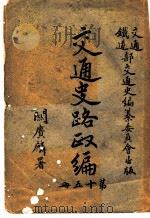 交通
鐵道部交通史編纂委員會出版
交通史路政編
關賡麟署
第十五冊